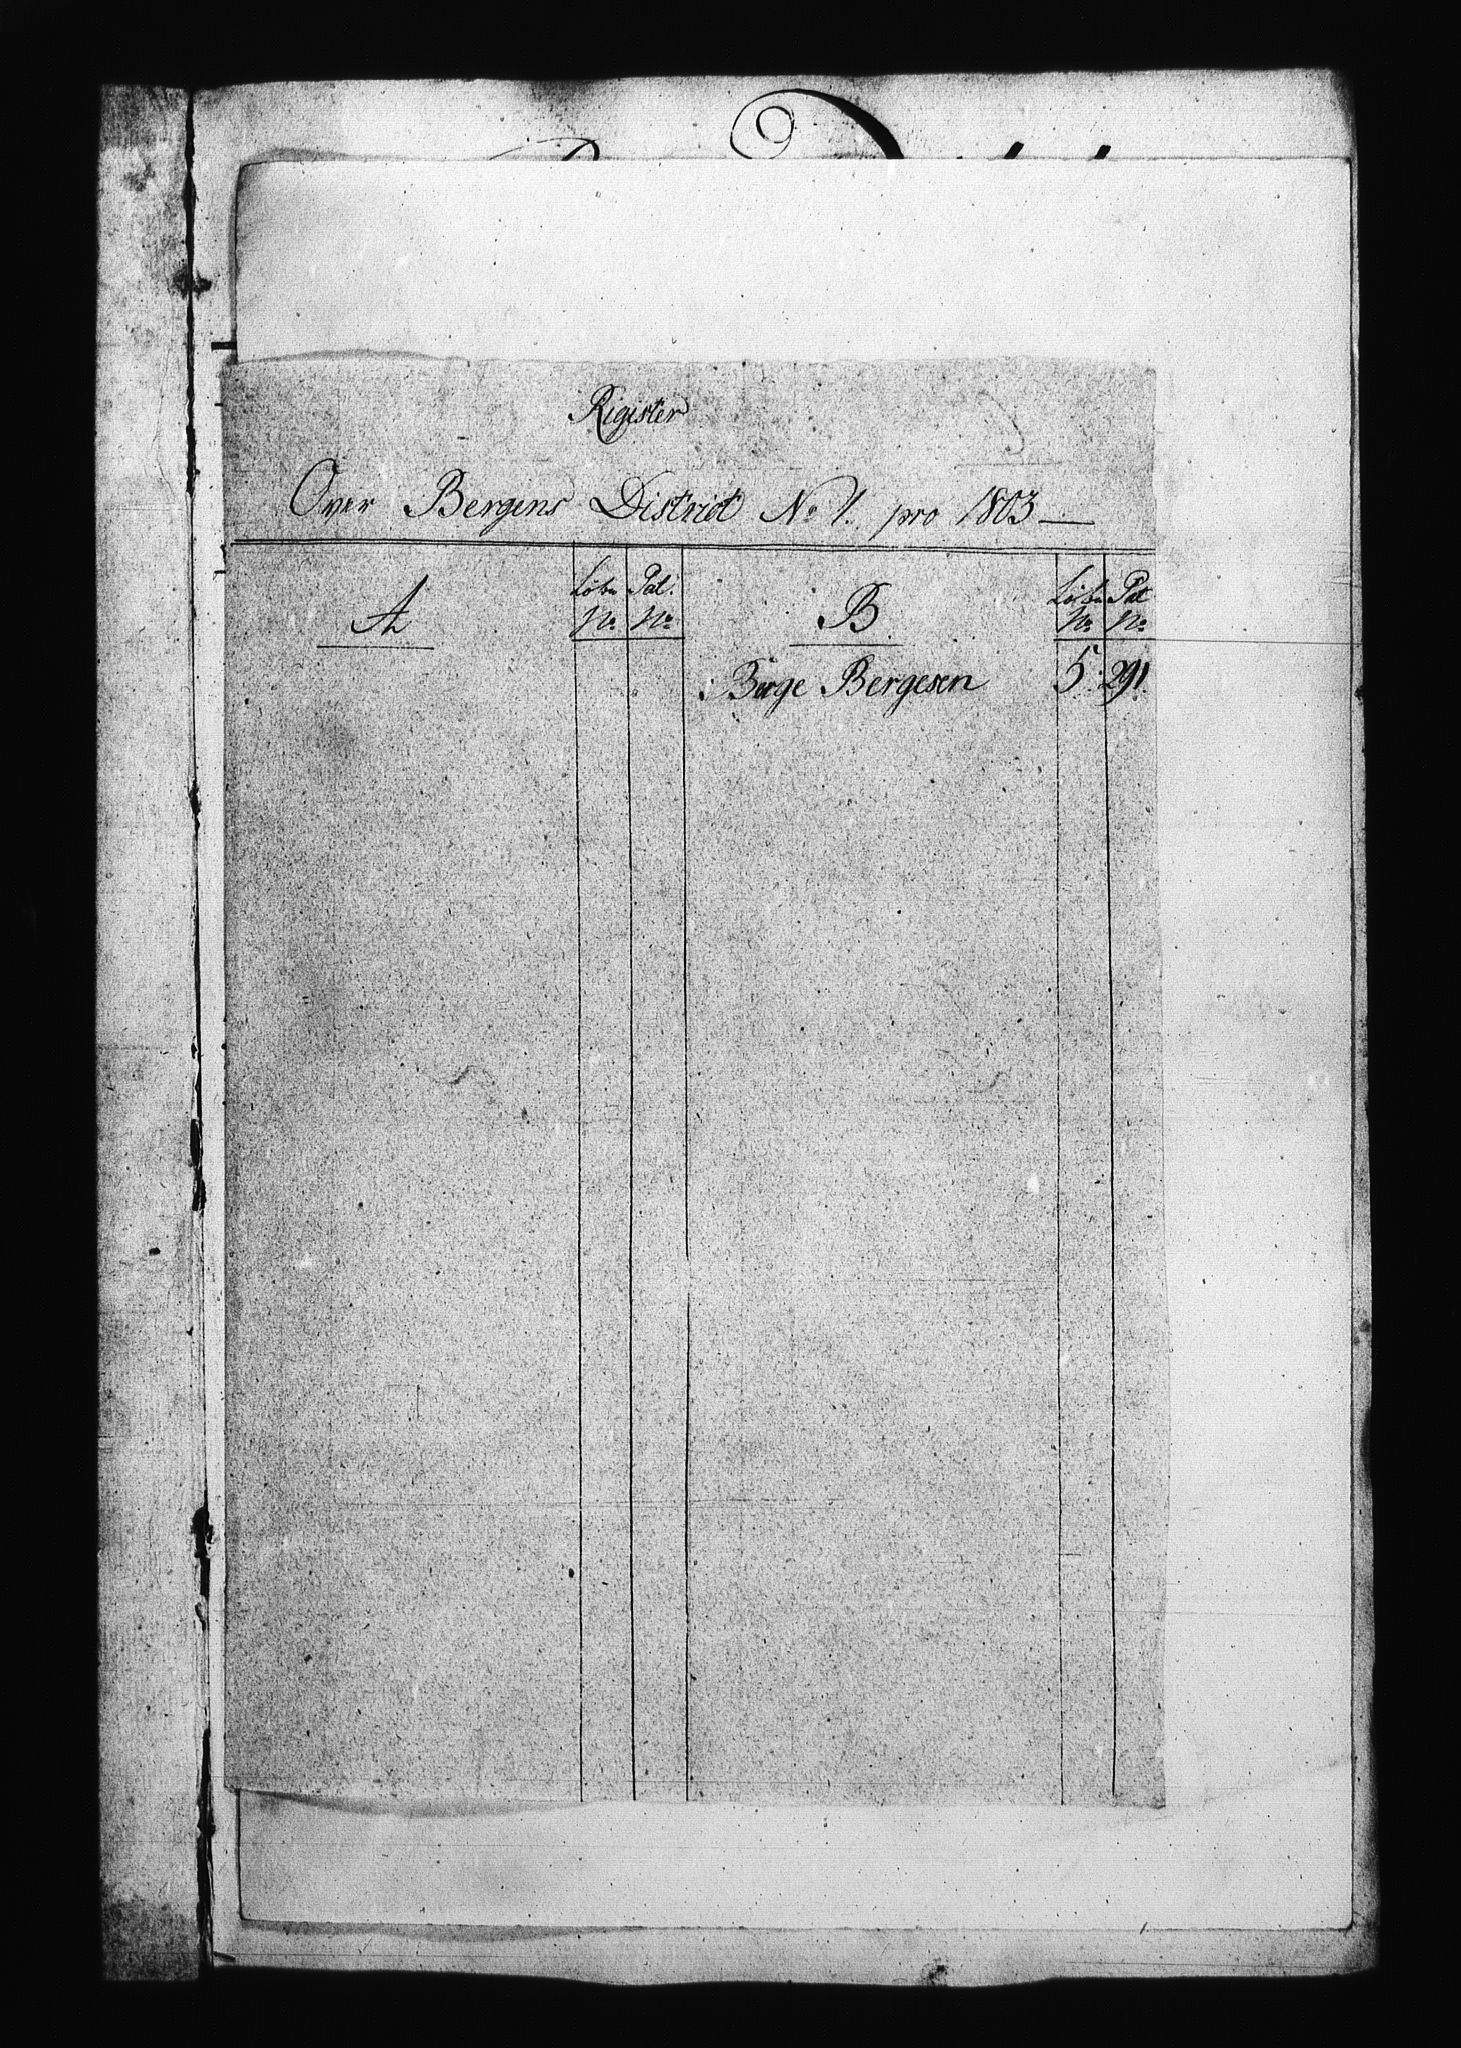 Rigister
Over Bergens District No 1. pro 1803 —
A Løbe No Pat. No B Løbe No Pat No
Børge Bergesen 5 291